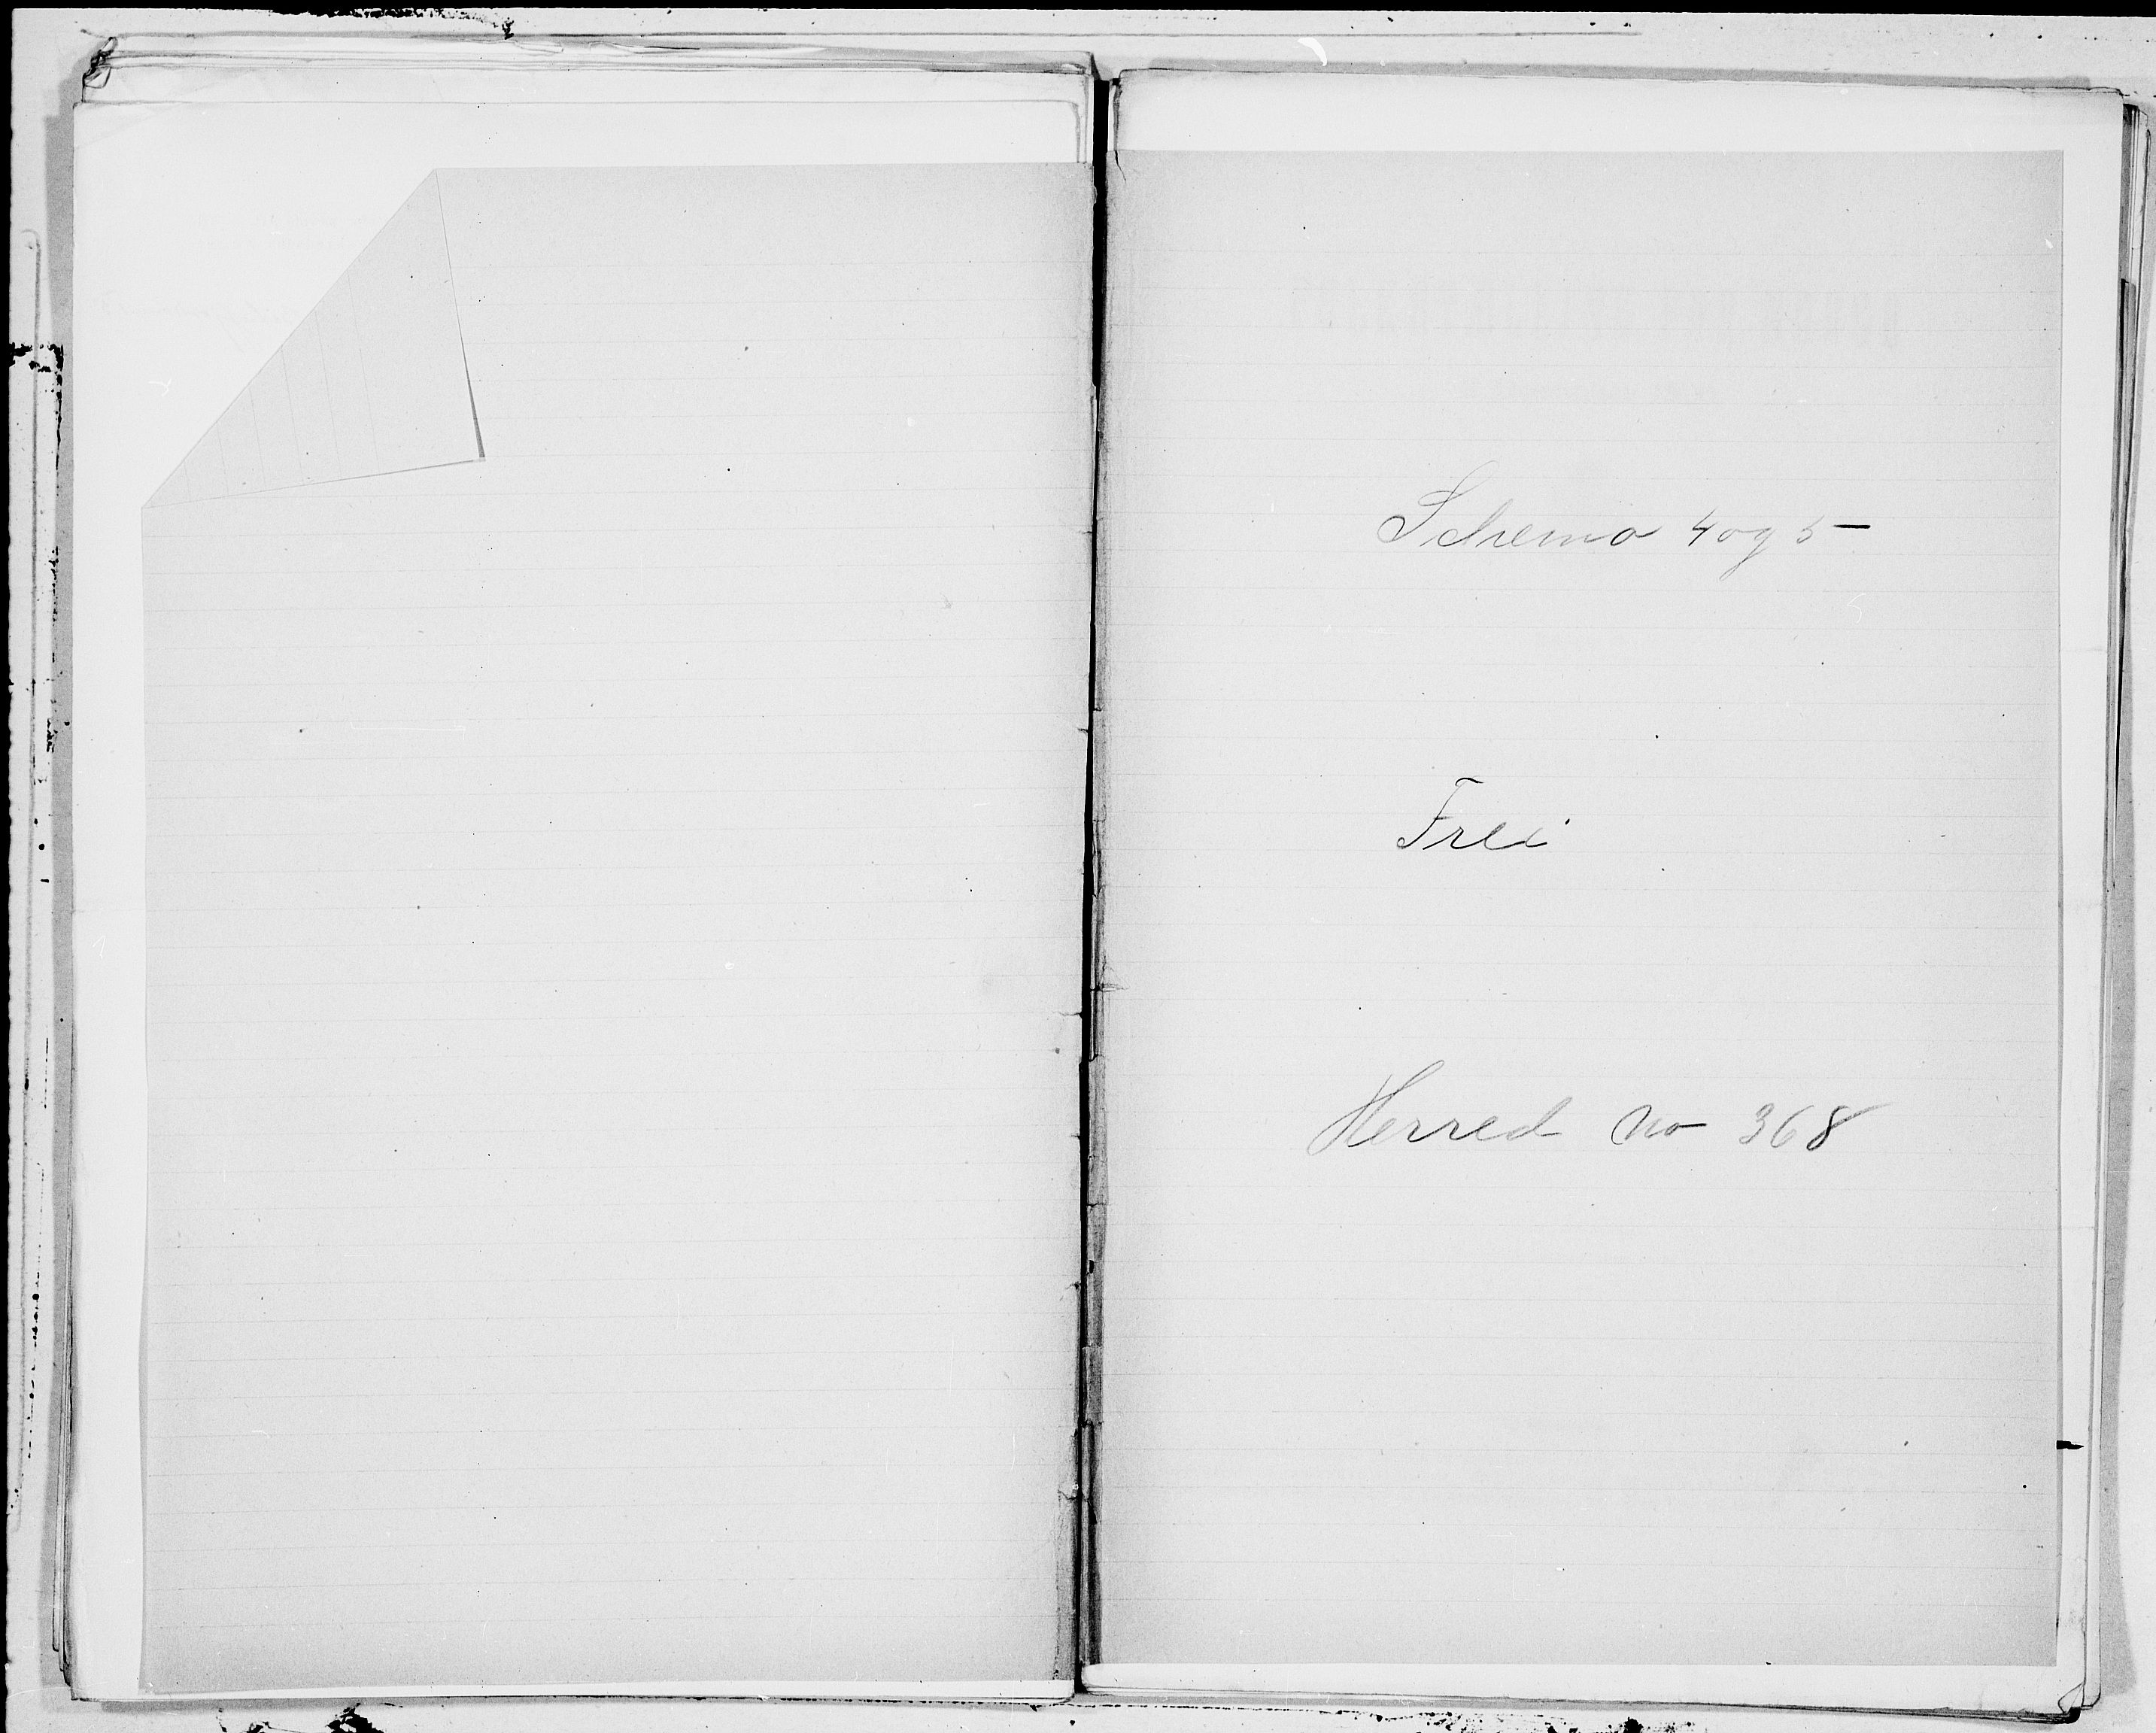 Schema 4 og 5
Frei
Herred no 368